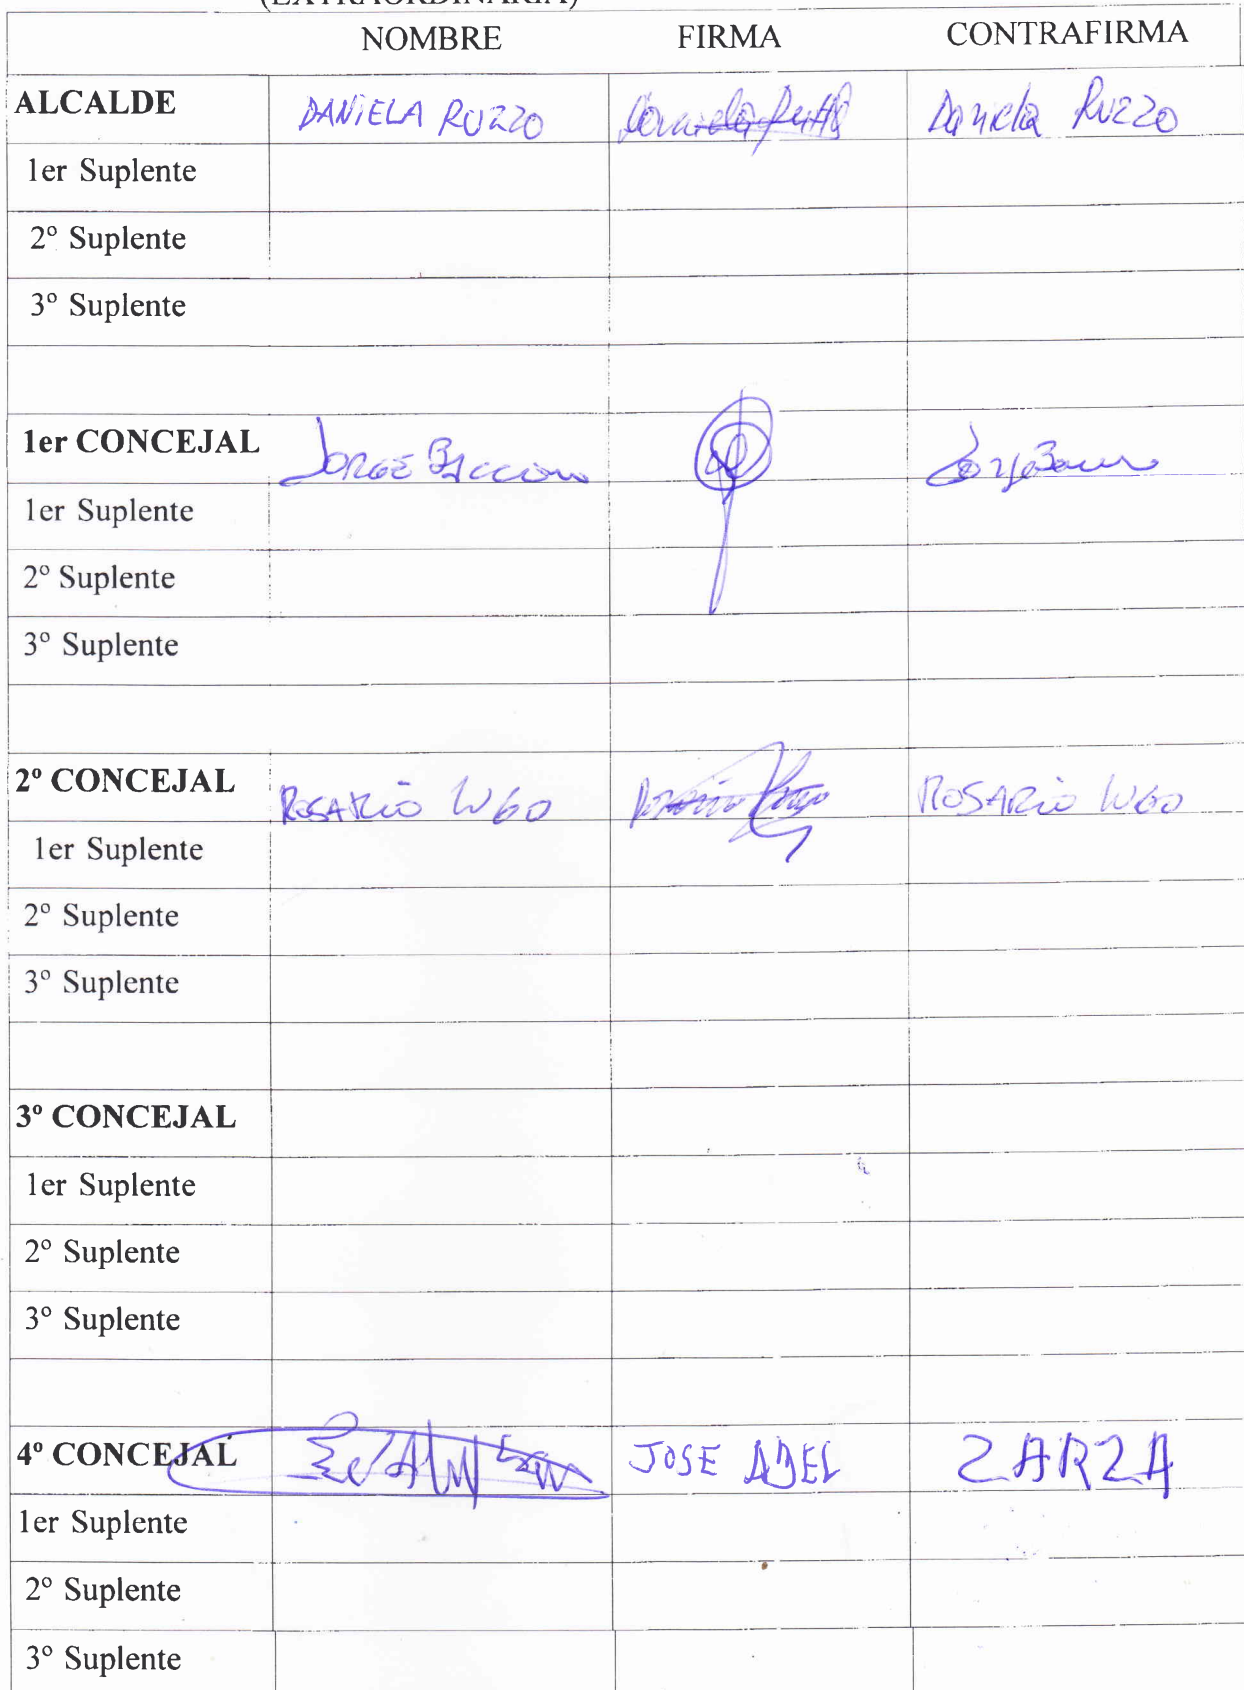 (EXTRAORDINARIA)
NOMBRE FIRMA CONTRAFIRMA
ALCALDE DANIELA RUZZO Daniela Ruzzo
1er Suplente
2º Suplente
3º Suplente
1er CONCEJAL JORGE
1er Suplente
2º Suplente
3º Suplente
2º CONCEJAL ROSARIO LUGO ROSARIO LUGO
1er Suplente
2º Suplente
3º Suplente
3º CONCEJAL
1er Suplente
2º Suplente
3º Suplente
4º CONCEJAL JOSE ABEL ZARZA
1er Suplente
2º Suplente
3º Suplente